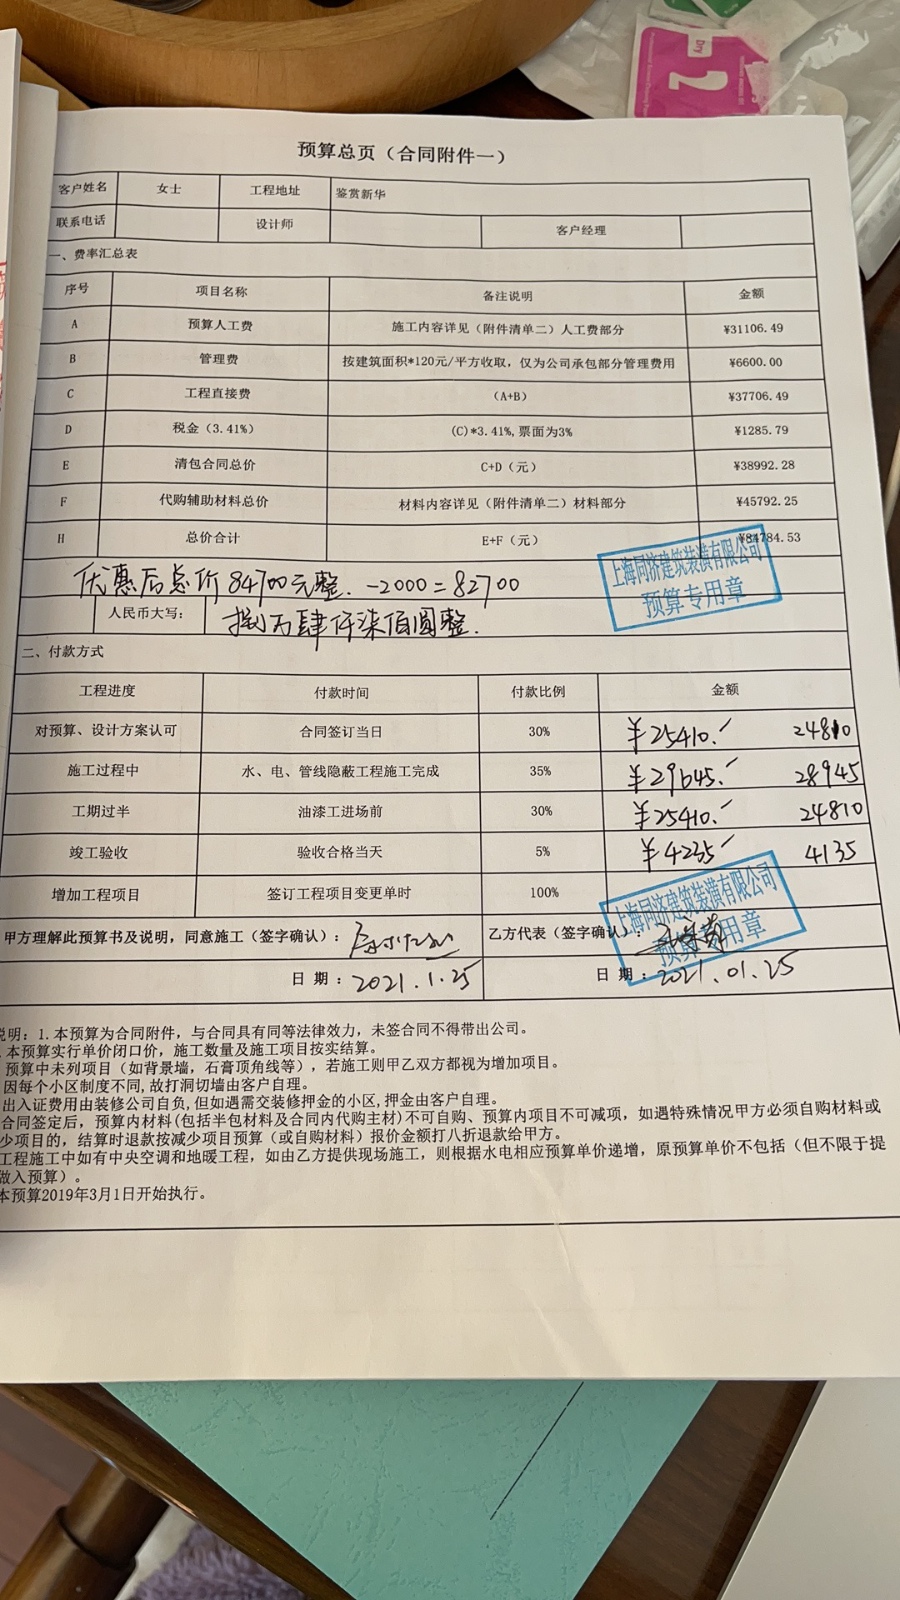 Dry
2
预算总页（合同附件一）
客户姓名 女士 工程地址 鉴赏新华
联系电话 设计师 客户经理
一、费率汇总表
序号 项目名称 备注说明 金额
A 预算人工费 施工内容详见（附件清单二）人工费部分 ¥31106.49
B 管理费 按建筑面积*120元/平方收取，仅为公司承包部分管理费用 ¥6600.00
C 工程直接费 （A+B） ¥37706.49
D 税金（3.41%） (C)*3.41%,票面为3% ¥1285.79
E 清包合同总价 C+D（元） ¥38992.28
F 代购辅助材料总价 材料内容详见（附件清单二）材料部分 ¥45792.25
H 总价合计 E+F（元） ¥84784.53
上海同济建筑装潢有限公司
预算专用章
优惠后总价84700元整. -2000=82700
人民币大写： 捌万肆仟柒佰圆整.
二、付款方式
工程进度 付款时间 付款比例 金额
对预算、设计方案认可 合同签订当日 30% ¥25410.- 24810
施工过程中 水、电、管线隐蔽工程施工完成 35% ¥29645.- 28945
工期过半 油漆工进场前 30% ¥25410.- 24810
竣工验收 验收合格当天 5% ¥4235- 4135
增加工程项目 签订工程项目变更单时 100%
上海同济建筑装潢有限公司
预算专用章
甲方理解此预算书及说明，同意施工（签字确认）： 乙方代表（签字确认）：
日 期：2021.1.25 日 期：2021.01.25
说明：1.本预算为合同附件，与合同具有同等法律效力，未签合同不得带出公司。
本预算实行单价闭口价，施工数量及施工项目按实结算。
预算中未列项目（如背景墙，石膏顶角线等），若施工则甲乙双方都视为增加项目。
因每个小区制度不同,故打洞切墙由客户自理。
出入证费用由装修公司自负,但如遇需交装修押金的小区,押金由客户自理。
合同签定后，预算内材料(包括半包材料及合同内代购主材)不可自购、预算内项目不可减项，如遇特殊情况甲方必须自购材料或
少项目的，结算时退款按减少项目预算（或自购材料）报价金额打八折退款给甲方。
工程施工中如有中央空调和地暖工程，如由乙方提供现场施工，则根据水电相应预算单价递增，原预算单价不包括（但不限于提
做入预算）。
本预算2019年3月1日开始执行。